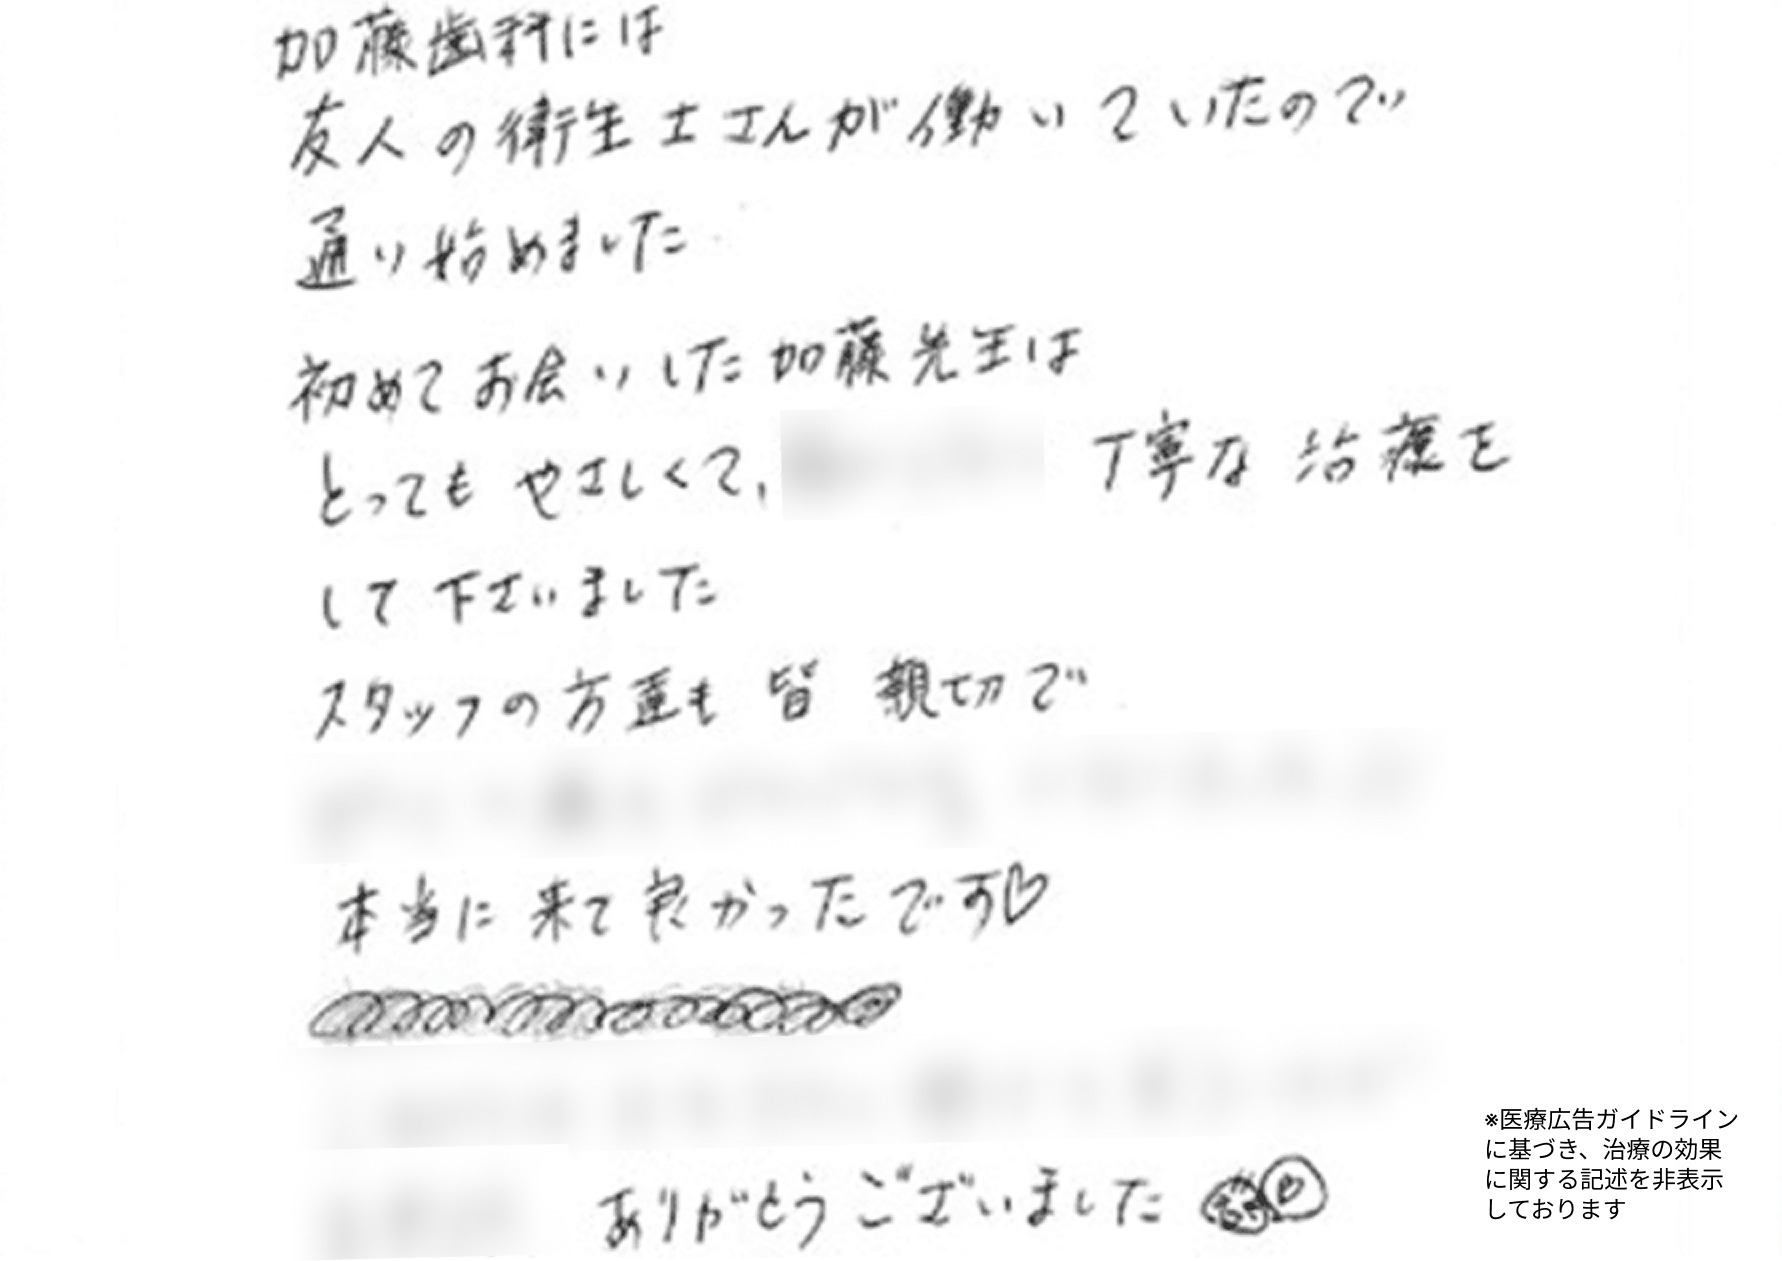 加藤歯科には
友人の衛生士さんが働いていたので
通り始めました
初めてお会いした加藤先生は
とってもやさしくて、 丁寧な治療を
して下さいました
スタッフの方達も皆親切で
本当に来て良かったです♡
ありがとうございました
※医療広告ガイドライン
に基づき、治療の効果
に関する記述を非表示
しております